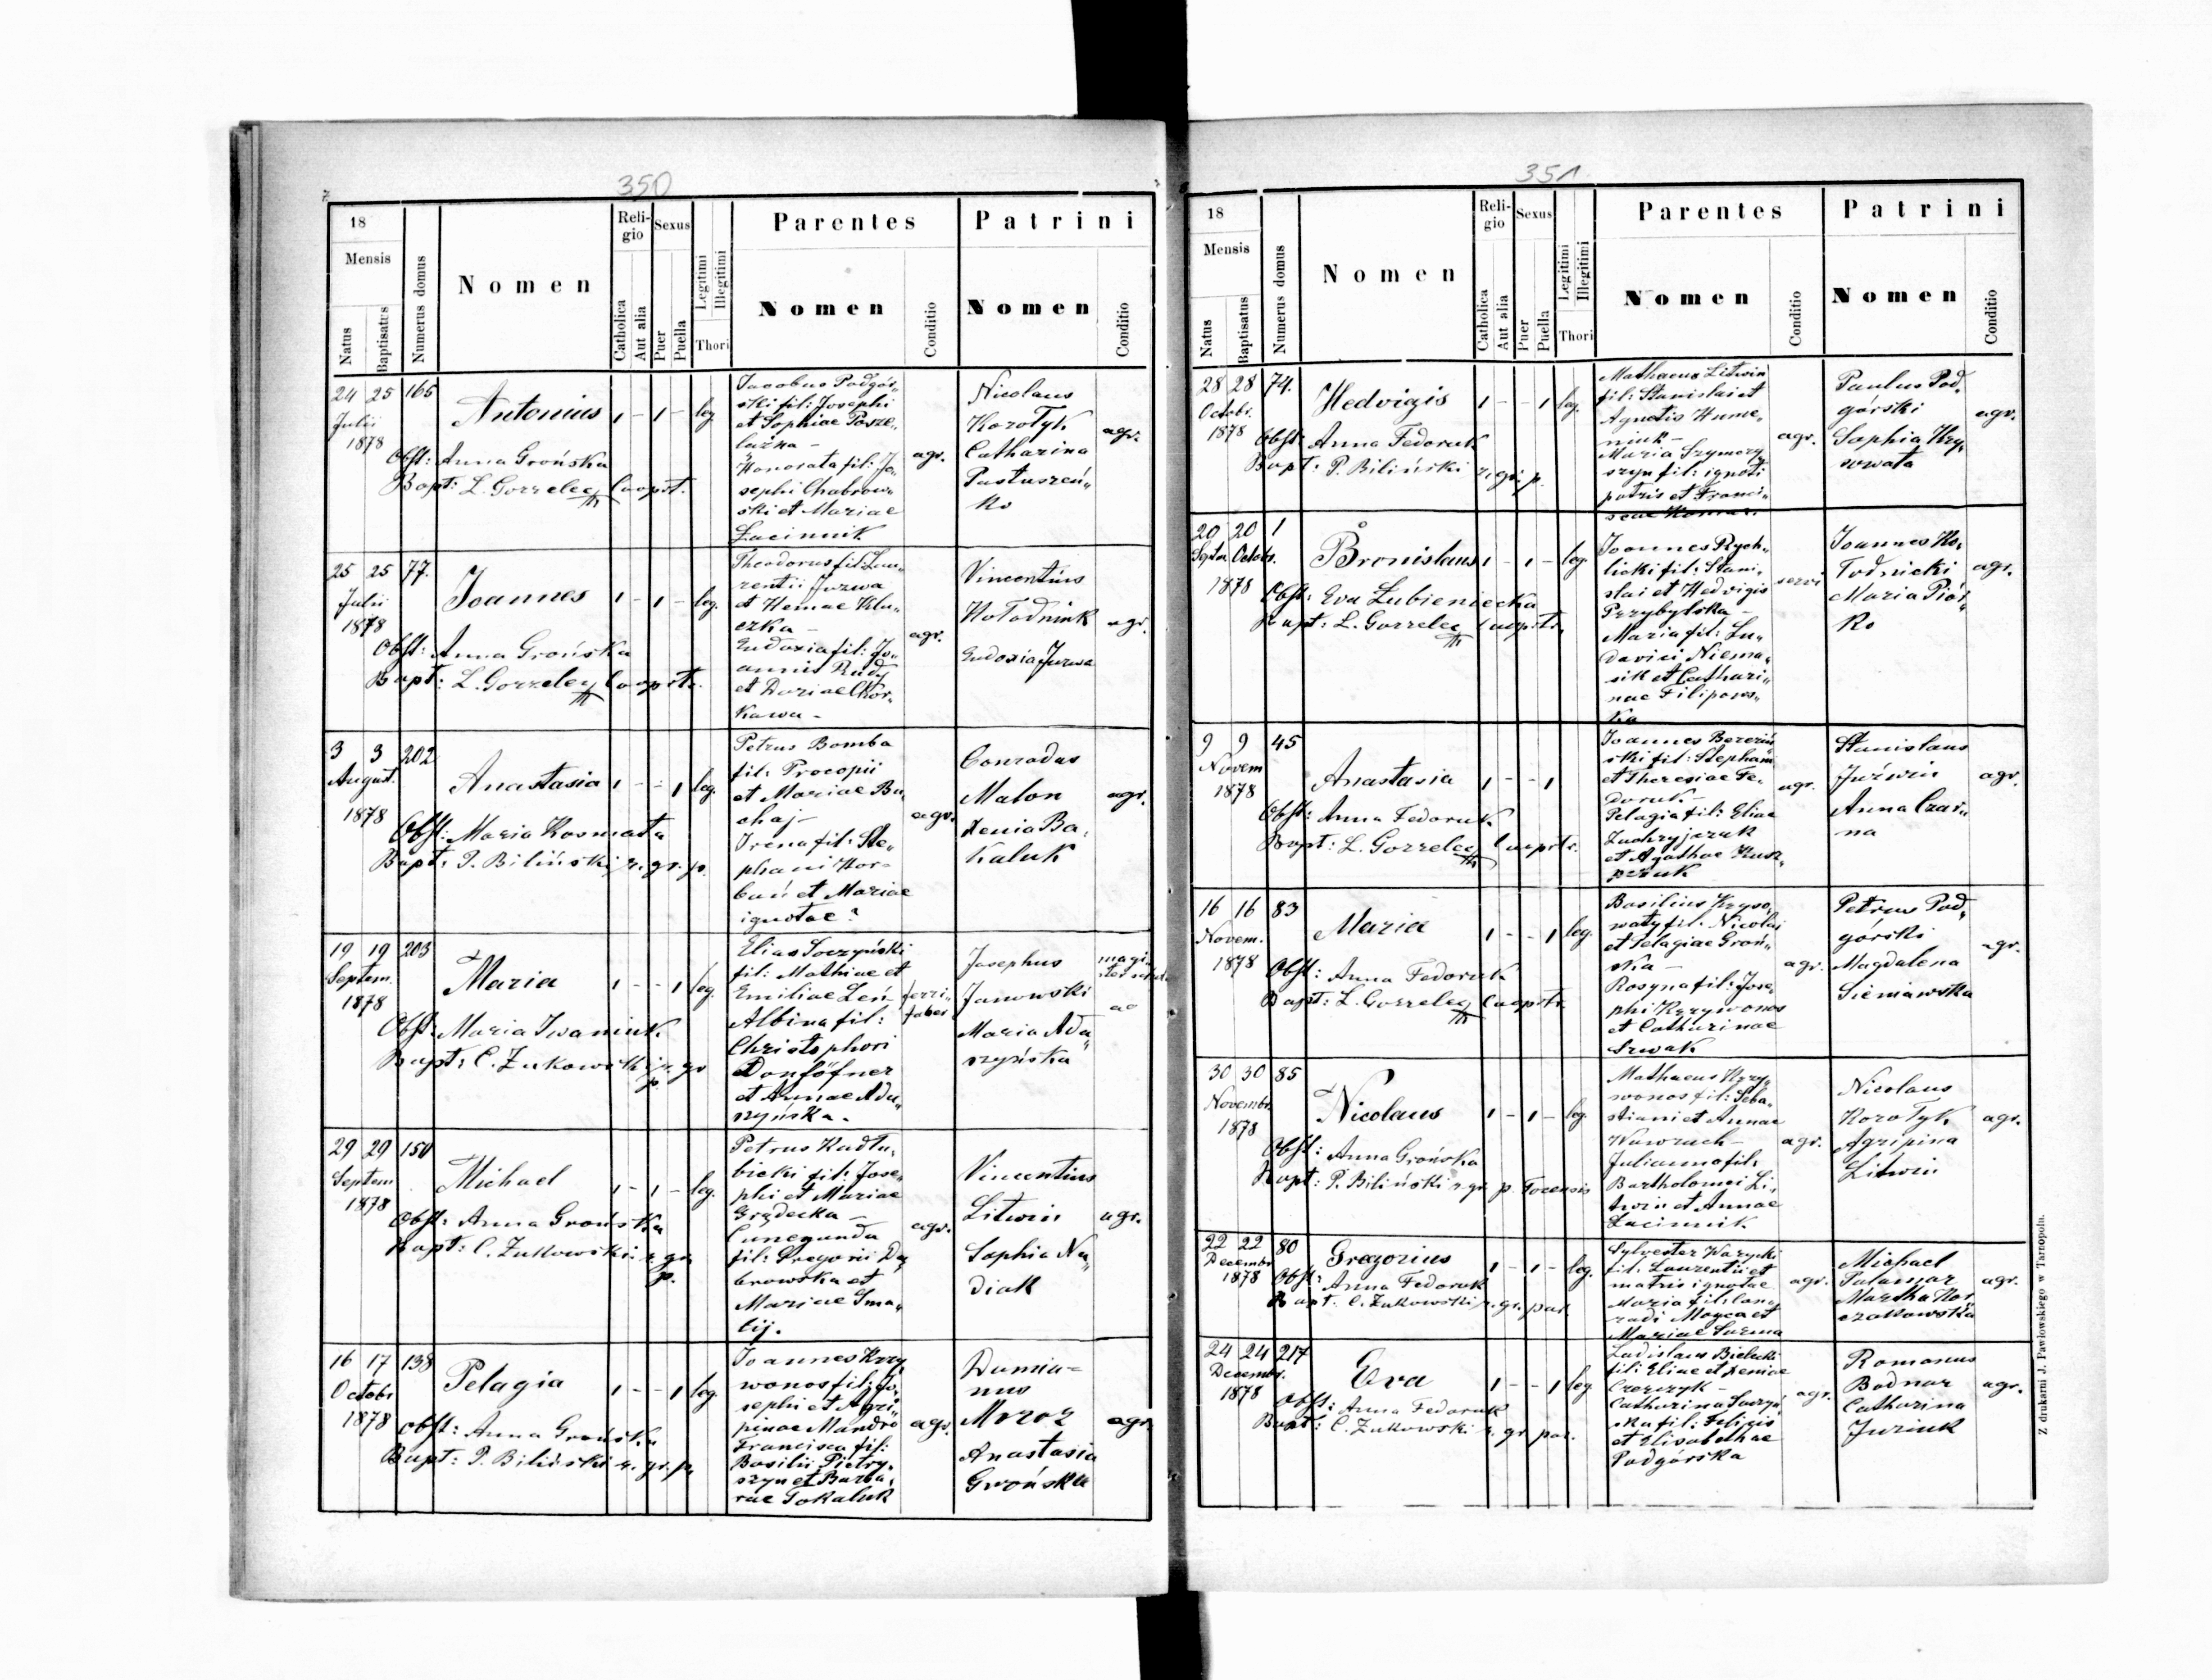 350
18
Mensis
Natus
Baptisatus
Numerus domus
Nomen
Religio
Catholica
Aut alia
Sexus
Puer
Puella
Legitimi
Illegitimi
Thori
Parentes
Nomen
Conditio
Patrini
Nomen
Conditio
24 25 165
Julii
1878
Antonius 1 - 1 - leg.
Obst: Anna Grońska
Bapt: L. Gorzelec Cooprt.
Jacobus Podgór„
ski fil: Josephi
et Sophiae
Honorata fil: Jo„
sephi Chabrow„
ski et Mariae
Łucinnik
agr.
Nicolaus
Korotyk
Catharina
Pastuszeń„
ko
agr.
25 25 77.
Julii
1878
Joannes 1 - 1 - leg.
Obst: Anna Grońska
Bapt: L. Gorzelec Cooprtr.
Theodorus fil: Lau„
rentii Jurwa
et
Eudoxia fil: Jo„
annis Rudy
et Dariae
agr.
Vincentius
Hołodniuk
Eudoxia Jurwa
agr.
3 3 202
August.
1878
Anastasia 1 - - 1 leg.
Obst: Maria Kosmata
Bapt: P. Biliński r. gr. p.
Petrus Bomba
fil: Procopii
et Mariae Bu„
chaj -
Irena fil: Ste„
phani Hor„
bań et Mariae
ignotae?
agr.
Conradus
Malon
Xenia Ba„
kaluk
agr.
19 19 203
Septem.
1878
Maria 1 - - 1 leg.
Obst: Maria Iwaniuk
Bapt: C. Żukowski r. gr.
p.
Elias Soczyński
fil: Mathiae et
Emiliae Leń -
Albina fil:
Christophori
Donföfner
et Annae Ada„
szyńska.
ferri„
faber
Josephus
Janowski
Maria Ada„
szyńska
29 29 150
Septem
1878
Michael 1 - 1 - leg.
Obst: Anna Grońska
Bapt: C. Żukowski r. gr.
p.
Petrus Kadłu„
bicki fil: Jose„
phi et Mariae
Grądecka -
Cunegunda
fil: Gregorii Dą„
browska et
Mariae Sma„
lij.
agr.
Vincentius
Litwin
Sophia Na„
diak
agr.
16 17 138
Octobr
1878
Pelagia 1 - - 1 leg.
Obst: Anna Grońska
Bapt: P. Biliński r. gr. p.
Joannes Krzy„
wonos fil: Jo„
sephi et Agri„
pinae Mandro
Francisca fil:
Basilii Pietry„
szyn et Barba„
rae Tokaluk
agr.
Damia=
nus
Mroz
Anastasia
Grońska
agr.
351
18
Mensis
Natus
Baptisatus
Numerus domus
Nomen
Religio
Catholica
Aut alia
Sexus
Puer
Puella
Legitimi
Illegitimi
Thori
Parentes
Nomen
Conditio
Patrini
Nomen
Conditio
28 28 74.
Octobr.
1878
Hedvigis 1 - - 1 leg.
Obst: Anna Fedoruk
Bapt: P. Biliński r. gr. p.
Mathaeus Litwin
fil: Stanislai et
Agnetis Hume„
niuk -
Maria
fil: ignoti
patris et Franci„
scae
agr.
Paulus Pod„
górski
Sophia Kry„
sowata
agr.
20 20 1
Septm. Octobr.
1878
Bronislaus 1 - 1 - leg.
Obst: Eva Łubieniecka
Bapt: L. Gorzelec Cooprtr.
Joannes Rych„
licki fil: Stani„
slai et Hedvigis
Przybylska -
Maria fil: Lu„
dovici Niema„
sik et Cathari„
nae Filipows„
ka
servi
Joannes Ho„
łodnicki
Maria Piór„
ko
agr.
9 9 45
Novem
1878
Anastasia 1 - - 1
Obst: Anna Fedoruk
Bapt: L. Gorzelec Cooprtr.
Joannes
ski fil: Stephani
et Theresiae Fe„
doruk -
Pelagia fil: Eliae
Zachryjczuk
et Agathae
agr.
Stanislaus
Juźwin
Anna Czar„
na
agr.
16 16 83
Novem.
1878
Maria 1 - - 1 leg.
Obst: Anna Fedoruk
Bapt: L. Gorzelec Cooprtr.
Basilius Kryso„
waty fil: Nicolai
et Pelagiae Groń„
ska -
Rosyna fil: Jose„
phi Krzywonos
et Catharinae
Szwak
agr.
Petrus Pod„
górski
Magdalena
Sieniawska
agr.
30 30 85
Novembr.
1878
Nicolaus 1 - 1 - leg.
Obst: Anna Grońska
Bapt: P. Biliński r. gr. p. Tocensis
Mathaeus Krzy„
wonos fil: Seba„
stiani et Annae
Wawruch -
Julianna fil:
Bartholomei Li„
twin et Annae
Łucinnik
agr.
Nicolaus
Korotyk
Agripina
Litwin
agr.
22 22 80
Decembr
1878
Gregorius 1 - 1 - leg.
Obst: Anna Fedoruk
Bapt. C. Żukowski r. gr. par.
Sylvester Warycki
fil: Laurentii et
matris ignotae
Maria fil: Con„
radi et
Mariae Surma
agr.
Michael
Palamar
Martha Kor„
czakowska
agr.
24 24 217
Decembr.
1878
Eva 1 - - 1 leg
Obst: Anna Fedoruk
Bapt: C. Żukowski r. gr. par.
Ladislaus Bielecki
fil: Eliae et Xeniae
Catharina
fil: Feligis
et Elisabethae
Podgórska
agr.
Romanus
Bodnar
Catharina
Juziuk
agr.
Z drukarni J. Pawłowskiego w Tarnopolu.